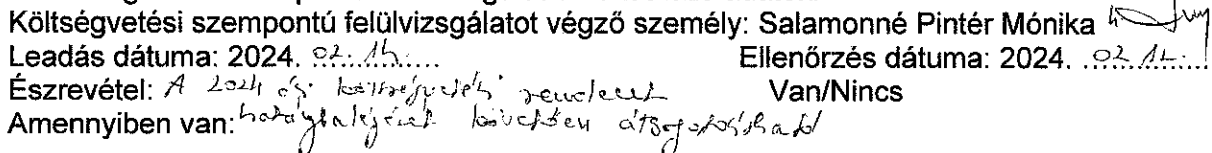 Költségvetési szempontú felülvizsgálatot végző személy: Salamonné Pintér Mónika
Leadás dátuma: 2024. 02. 14. Ellenőrzés dátuma: 2024. 02. 14.
Észrevétel: A 2024 évi költségvetési rendelet Van/Nincs
Amennyiben van: hatálybalépését követően